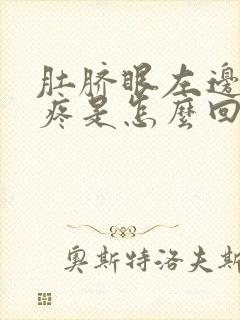 肚脐眼左邊
疼是怎麼回
奥斯特洛夫斯